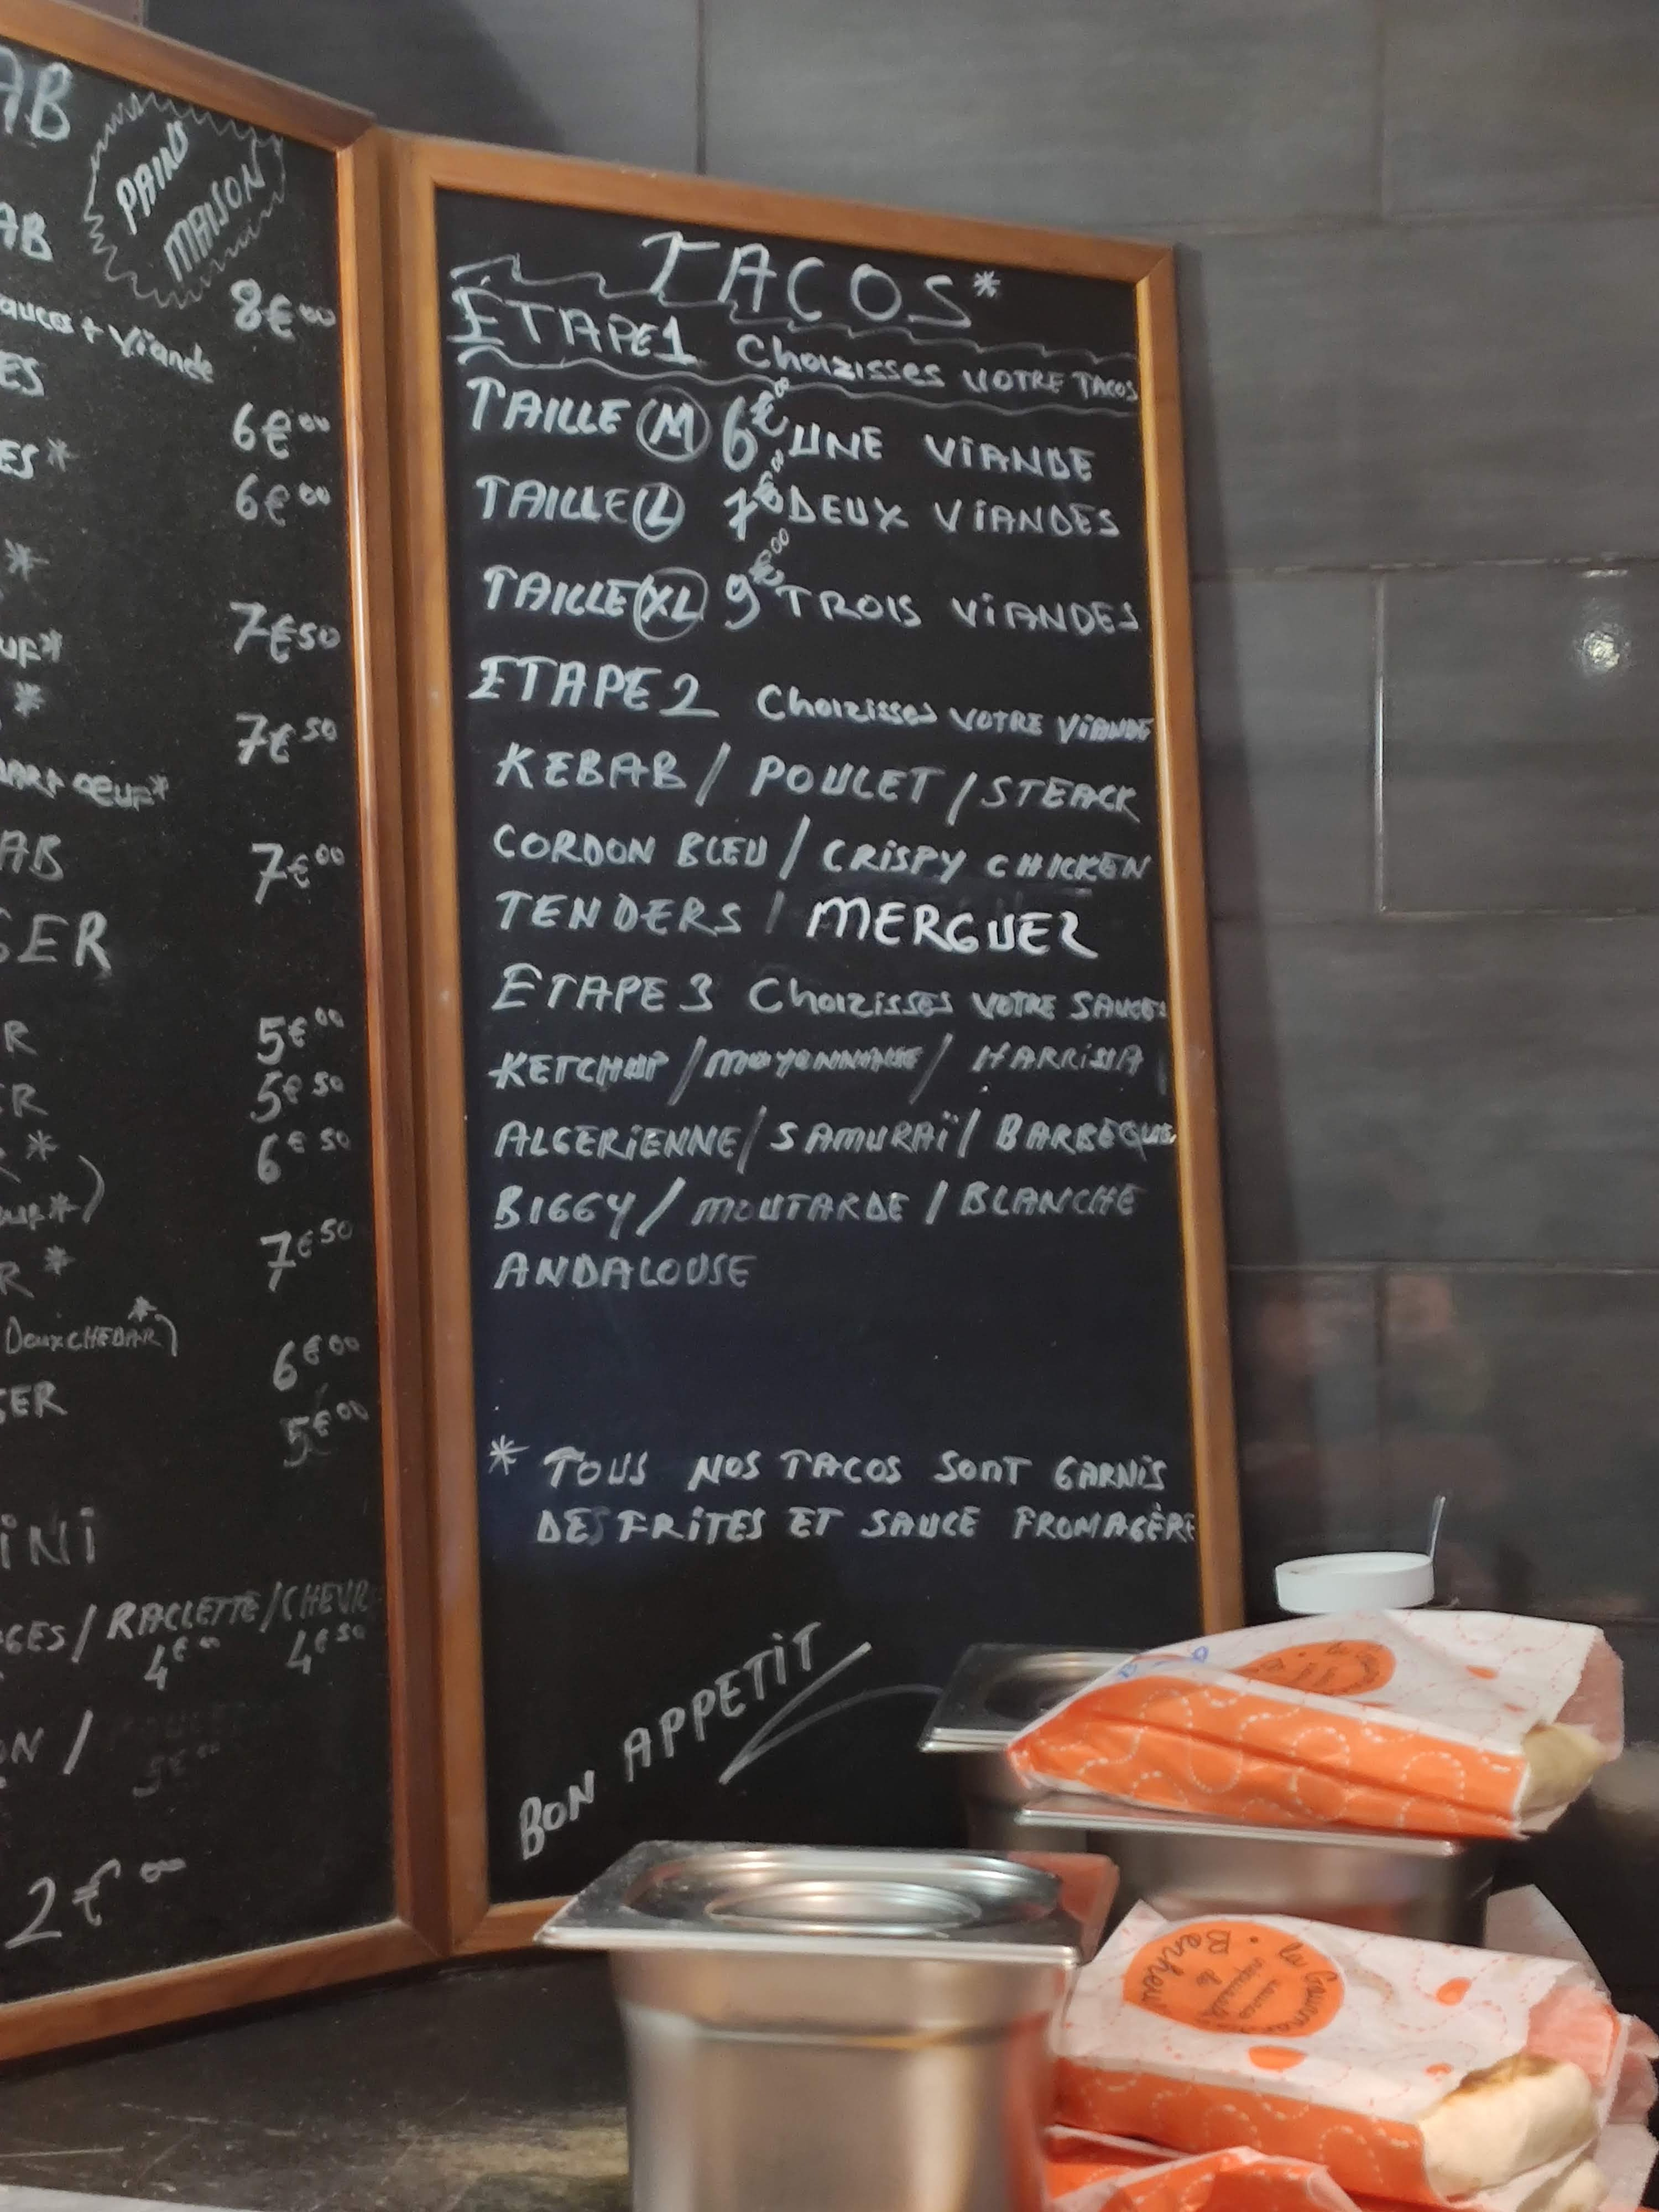 AB
PAIN
MAISON
AB
8€00
+ Viande
ES
6€00
ES*
6€00
*
7€50
*
7€50
OEUF*
AB
7€00
GER
R
5€00
ER
5€50
*
6€50
R *
7€50
Deux CHEDAR*)
6€00
GER
5€00
INI
GES / RACLETTE / CHEVR
4€00 4€50
ON /
5€00
2€00
TACOS*
ÉTAPE 1 Choizisses VOTRE TACOS
TAILLE M 6€00 UNE VIANDE
TAILLE L 7€00 DEUX VIANDES
TAILLE XL 9€00 TROIS VIANDES
ETAPE 2 Choizisses VOTRE VIANDE
KEBAB / POULET / STEACK
CORDON BLEU / CRISPY CHICKEN
TENDERS / MERGUEZ
ETAPE 3 Choizisses VOTRE SAUCE
KETCHUP / MAYONNAISE / HARRISSA
ALGERIENNE / SAMURAÏ / BARBEQUE
BIGGY / MOUTARDE / BLANCHE
ANDALOUSE
* TOUS NOS TACOS SONT GARNIS
DES FRITES ET SAUCE FROMAGÈRE
BON APPETIT